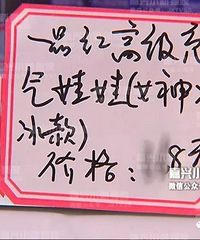 一品红高级充
气娃娃(女神
冰款)
价格: 8
嘉兴小
微信公众